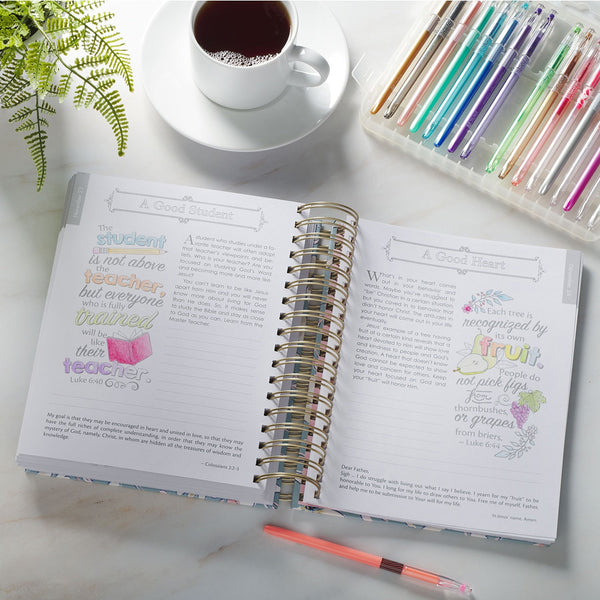 A Good Student
The
student
is not above
the
teacher,
but everyone
who is fully
trained
will be
like
their
teacher.
Luke 6:40
A student who studies under a fa-
vorite teacher will often adopt
that teacher's viewpoint and be-
liefs. Who is your teacher? Are you
focused on studying God's Word
and becoming more and more like
Jesus?
You can't learn to be like Jesus
apart from Him and you will never
know more about living for God
than He does. So, make time
to study the Bible and stay as close
to God as you can. Learn from the
Master Teacher.
My goal is that they may be encouraged in heart and united in love, so that they may
have the full riches of complete understanding, in order that they may know the
mystery of God, namely, Christ, in whom are hidden all the treasures of wisdom and
knowledge.
– Colossians 2:2-3
A Good Heart
What's in your heart comes
out in your behavior and
words. Maybe you've struggled to
"be" Christian in a certain situation
but you caved in to behavior that
didn't honor Christ. The attitude of
your heart will come out in your life
Jesus' example of a tree having
kindness to people and God's
Creation. A heart that doesn't know
God cannot be expected to show
love and concern for others. Keep
your heart focused on God and
your "fruit" will honor Him.
Each tree is
recognized by
its own
fruit.
People do
not pick figs
from
thornbushes,
or grapes
from briers.
– Luke 6:44
Dear Father,
Sigh ... I do struggle with living out what I say I believe. I yearn for my "fruit" to be
honorable to You. I long for my life to draw others to You. Free me of myself, Father,
and help me to be submissive to Your will for my life.
In Jesus' name, Amen.